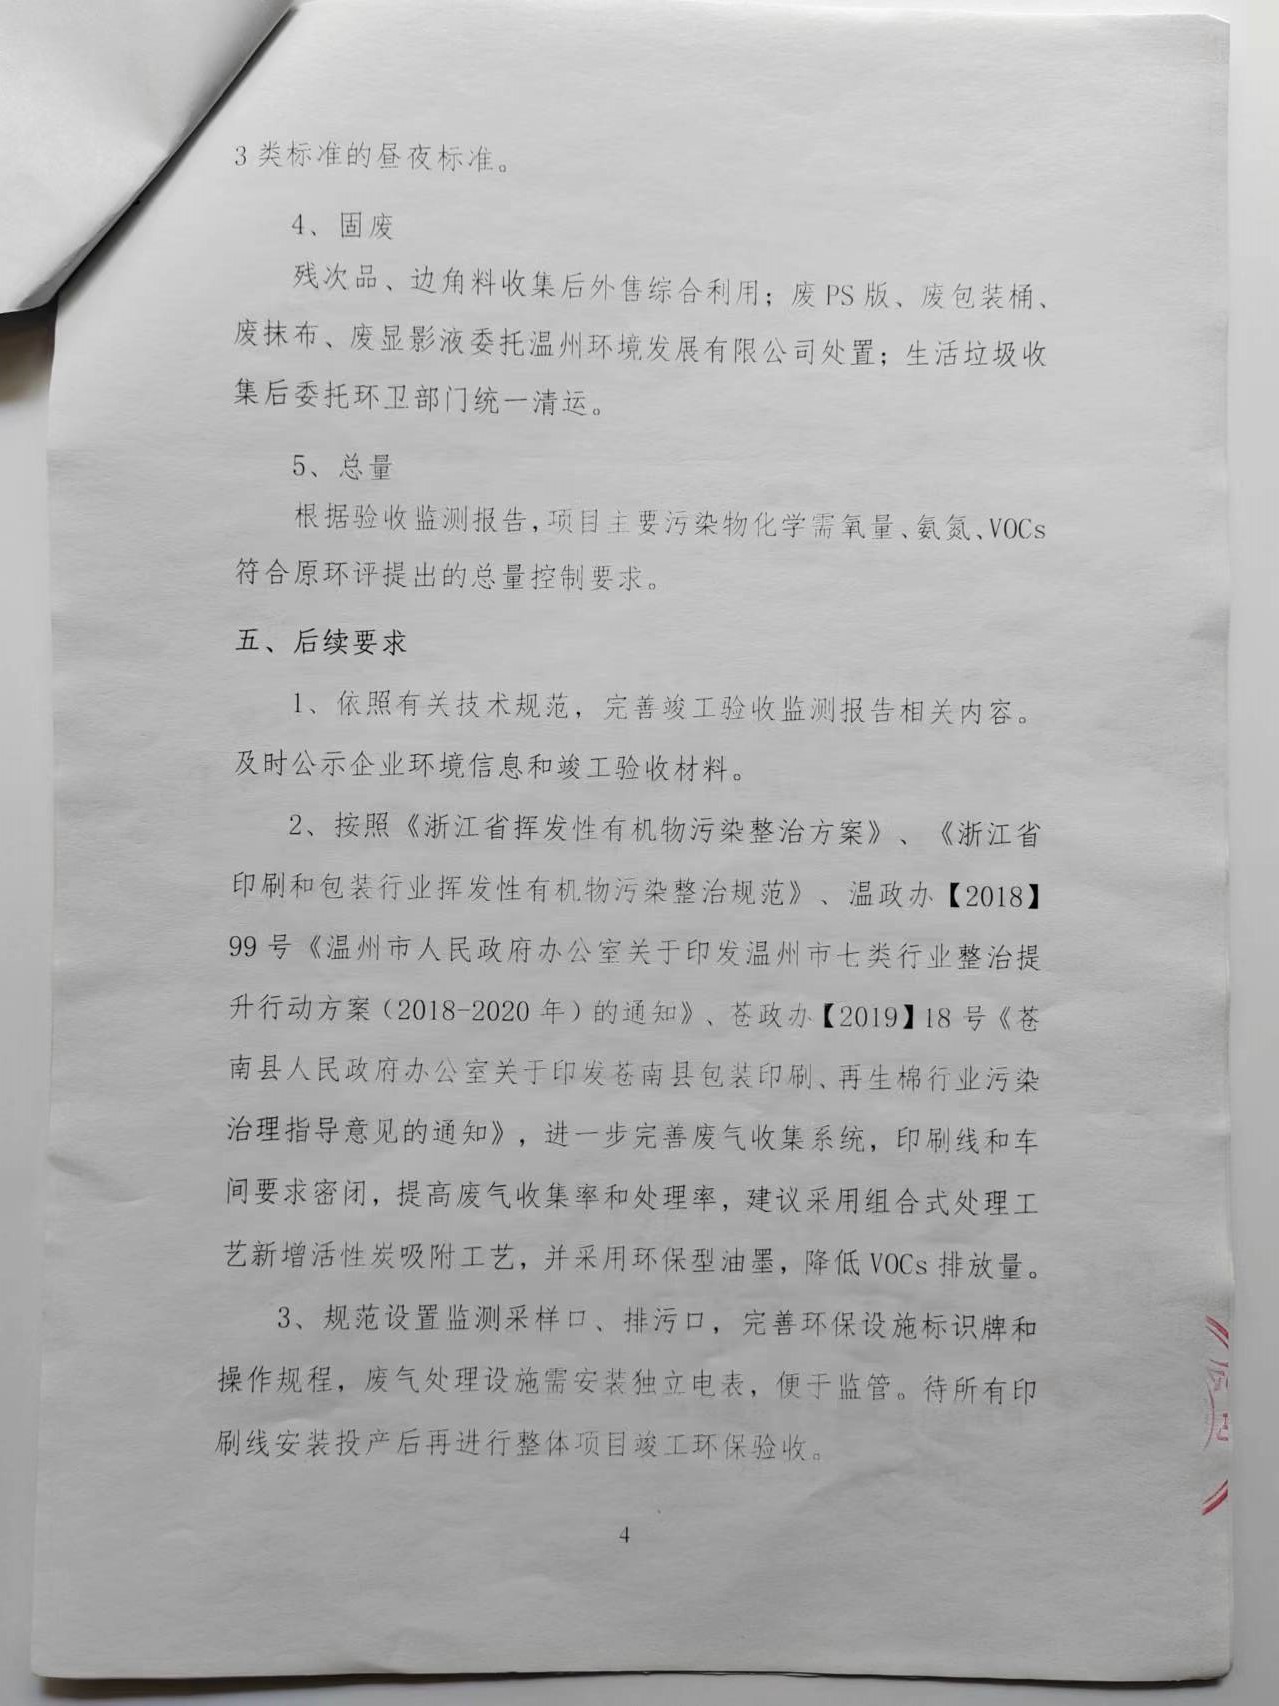 3 类标准的昼夜标准。
4、固废
残次品、边角料收集后外售综合利用；废 PS 版、废包装桶、
废抹布、废显影液委托温州环境发展有限公司处置；生活垃圾收
集后委托环卫部门统一清运。
5、总量
根据验收监测报告,项目主要污染物化学需氧量、氨氮、VOCs
符合原环评提出的总量控制要求。
五、后续要求
1、依照有关技术规范，完善竣工验收监测报告相关内容。
及时公示企业环境信息和竣工验收材料。
2、按照《浙江省挥发性有机物污染整治方案》、《浙江省
印刷和包装行业挥发性有机物污染整治规范》、温政办【2018】
99 号《温州市人民政府办公室关于印发温州市七类行业整治提
升行动方案（2018-2020 年）的通知》、苍政办【2019】18 号《苍
南县人民政府办公室关于印发苍南县包装印刷、再生棉行业污染
治理指导意见的通知》，进一步完善废气收集系统，印刷线和车
间要求密闭，提高废气收集率和处理率，建议采用组合式处理工
艺新增活性炭吸附工艺，并采用环保型油墨，降低 VOCs 排放量。
3、规范设置监测采样口、排污口，完善环保设施标识牌和
操作规程，废气处理设施需安装独立电表，便于监管。待所有印
刷线安装投产后再进行整体项目竣工环保验收。
4